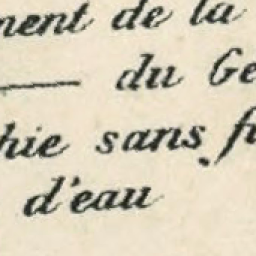 ment de la
du Ge
hie sans fi
d'eau